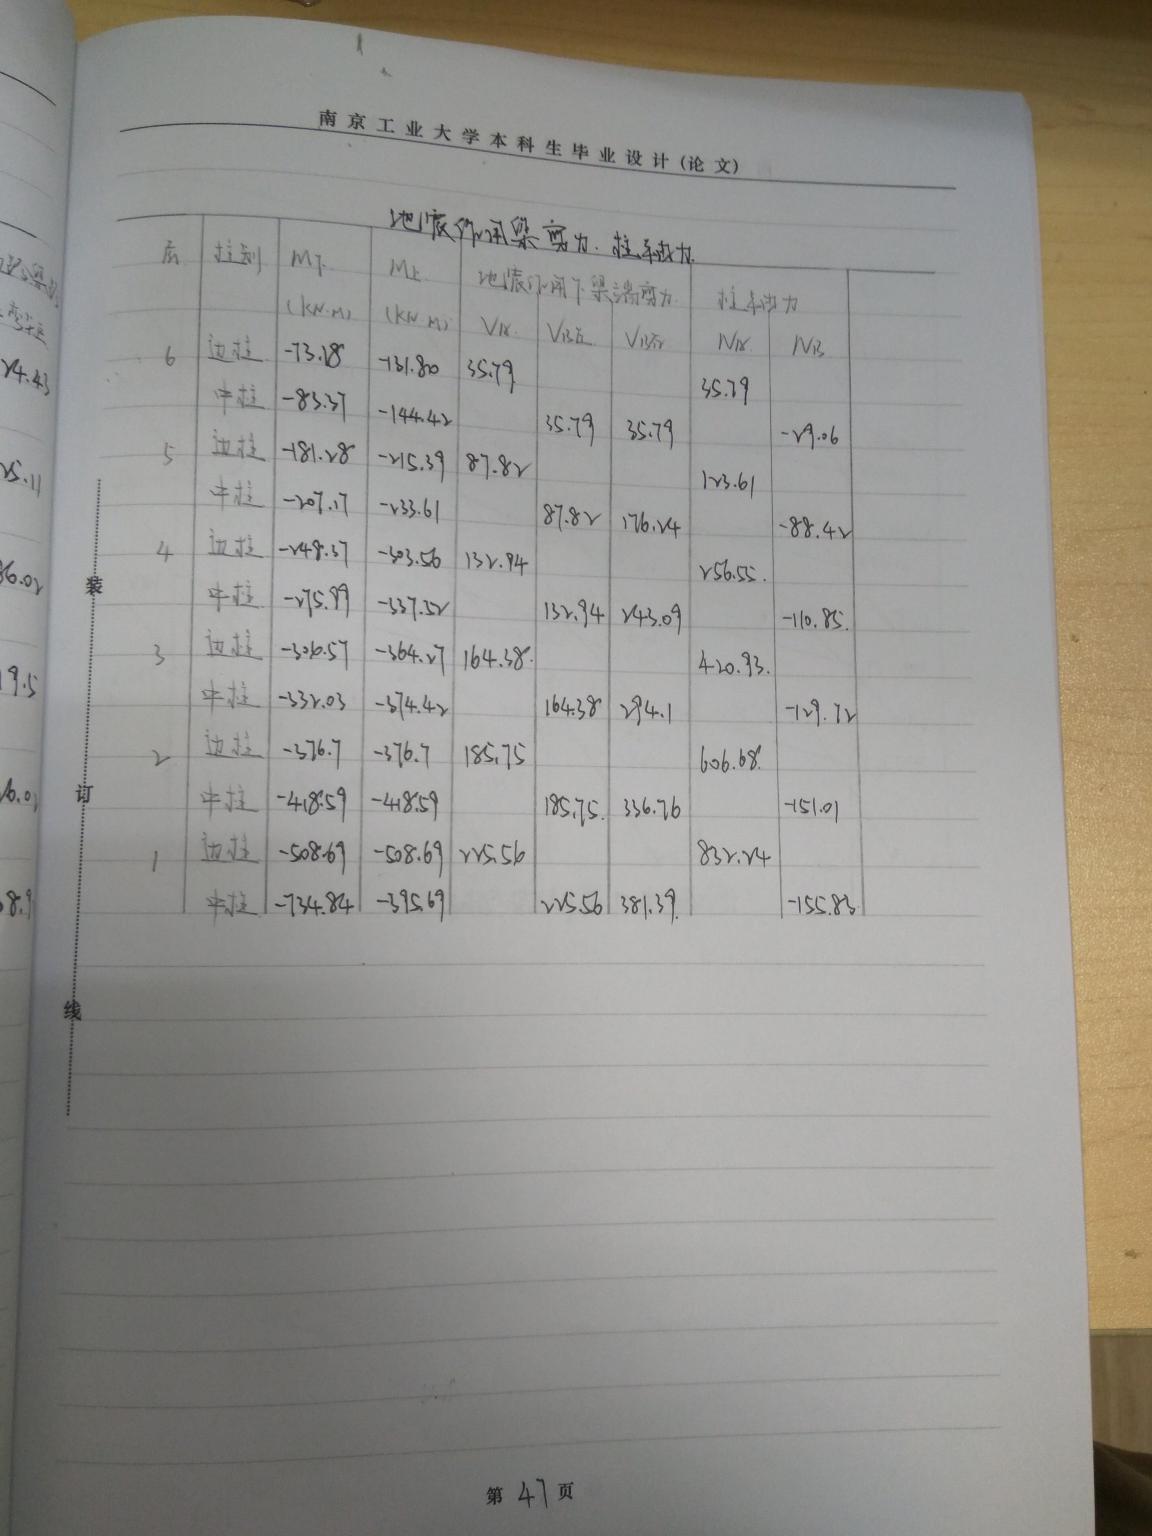 南京工业大学本科生毕业设计(论文)
地震作用梁剪力.柱轴力
层 柱别 M下 M上 地震作用下梁端剪力 柱轴力
(KN·M) (KN·M) V VB左 VB右 N NB
6 边柱 -73.18 -131.80 35.79 35.79
中柱 -83.37 -144.42 35.79 35.79 -29.06
5 边柱 -181.28 -215.39 87.82 123.61
中柱 -207.17 -233.61 87.82 176.24 -88.42
4 边柱 -248.37 -303.56 132.94 256.55.
中柱 -275.99 -337.32 132.94 243.09 -110.85.
3 边柱 -306.57 -364.27 164.38. 420.93.
中柱 -332.03 -374.42 164.38 294.1 -129.72
2 边柱 -376.7 -376.7 185.75 606.68.
中柱 -418.59 -418.59 185.75. 336.76 -151.01
1 边柱 -508.69 -508.69 225.56 832.24
中柱 -734.84 -395.69 225.56 381.39. -155.83
24.43
25.11
36.02
19.5
装
订
线
第47页